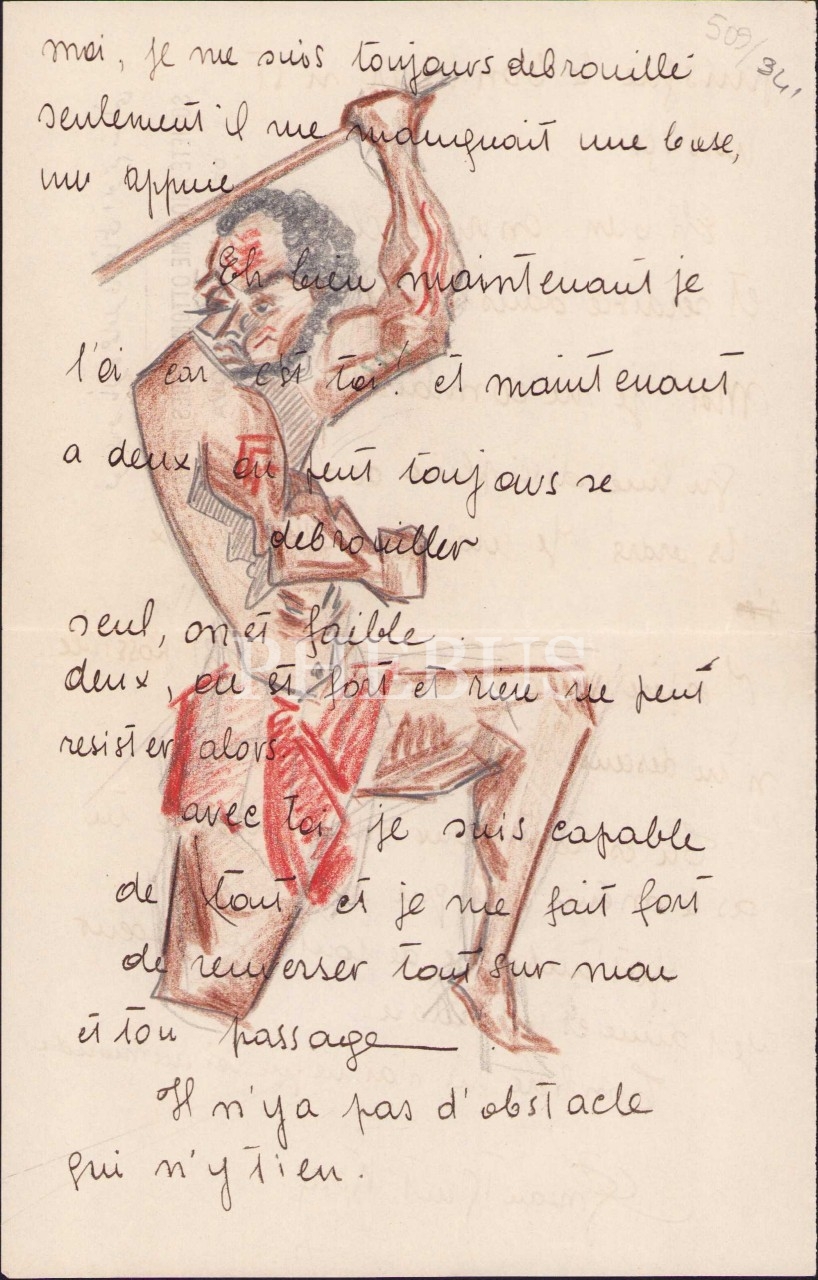 509/34,
moi, je me suis toujours debrouillé
seulement il me manquait une base,
un appuie
Eh bien maintenant je
l'ai car c'est toi! et maintenant
a deux on peut toujours se
debrouiller
seul, on est faible.
PHEBUS
deux, on est fort et rien ne peut
resister alors
avec toi je suis capable
de tout et je me fait fort
de renverser tout sur mon
et ton passage
Il n'y a pas d'obstacle
qui n'y tien.